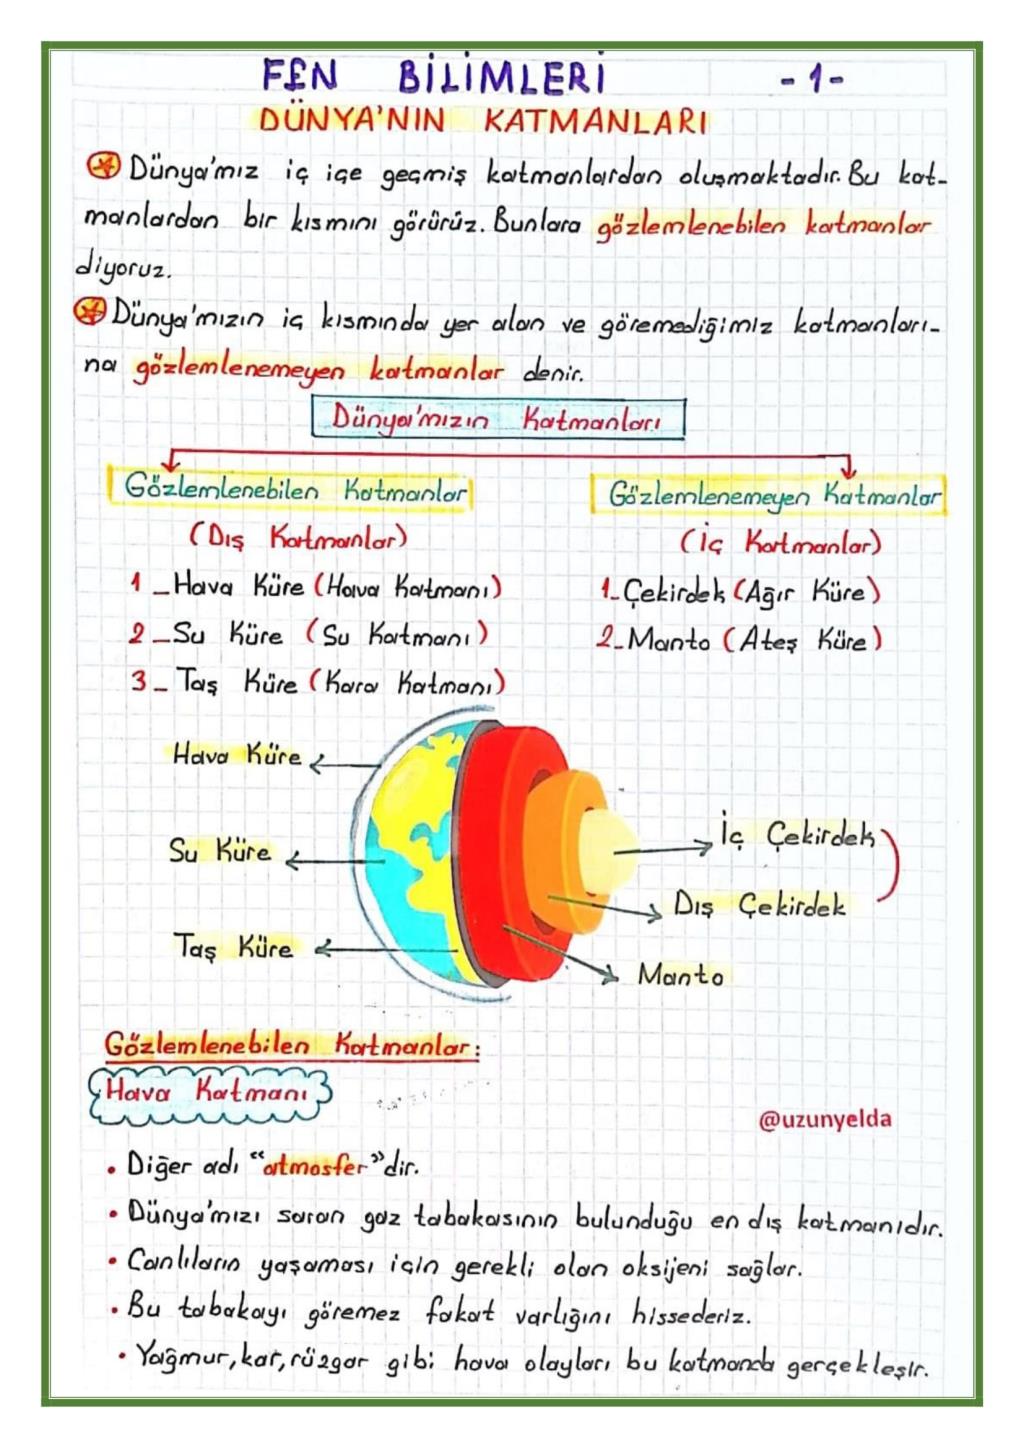 FEN BİLİMLERİ -1-
DÜNYA'NIN KATMANLARI
Dünya'mız iç içe geçmiş katmanlardan oluşmaktadır. Bu kat-
manlardan bir kısmını görürüz. Bunlara gözlemlenebilen katmanlar
diyoruz.
Dünya'mızın iç kısmında yer alan ve göremediğimiz katmanları-
na gözlemlenemeyen katmanlar denir.
Dünya'mızın Katmanları
Gözlemlenebilen Katmanlar
(Dış Katmanlar)
1_Hava Küre (Hava Katmanı)
2_Su Küre (Su Katmanı)
3_Taş Küre (Kara Katmanı)
Gözlemlenemeyen Katmanlar
(İç Katmanlar)
1_Çekirdek (Ağır Küre)
2_Manto (Ateş Küre)
Hava Küre
Su Küre
Taş Küre
İç Çekirdek
Dış Çekirdek
Manto
Gözlemlenebilen Katmanlar:
Hava Katmanı
@uzunyelda
• Diğer adı "atmosfer"dir.
• Dünya'mızı saran gaz tabakasının bulunduğu en dış katmanıdır.
• Canlıların yaşaması için gerekli olan oksijeni sağlar.
• Bu tabakayı göremez fakat varlığını hissederiz.
• Yağmur, kar, rüzgar gibi hava olayları bu katmanda gerçekleşir.